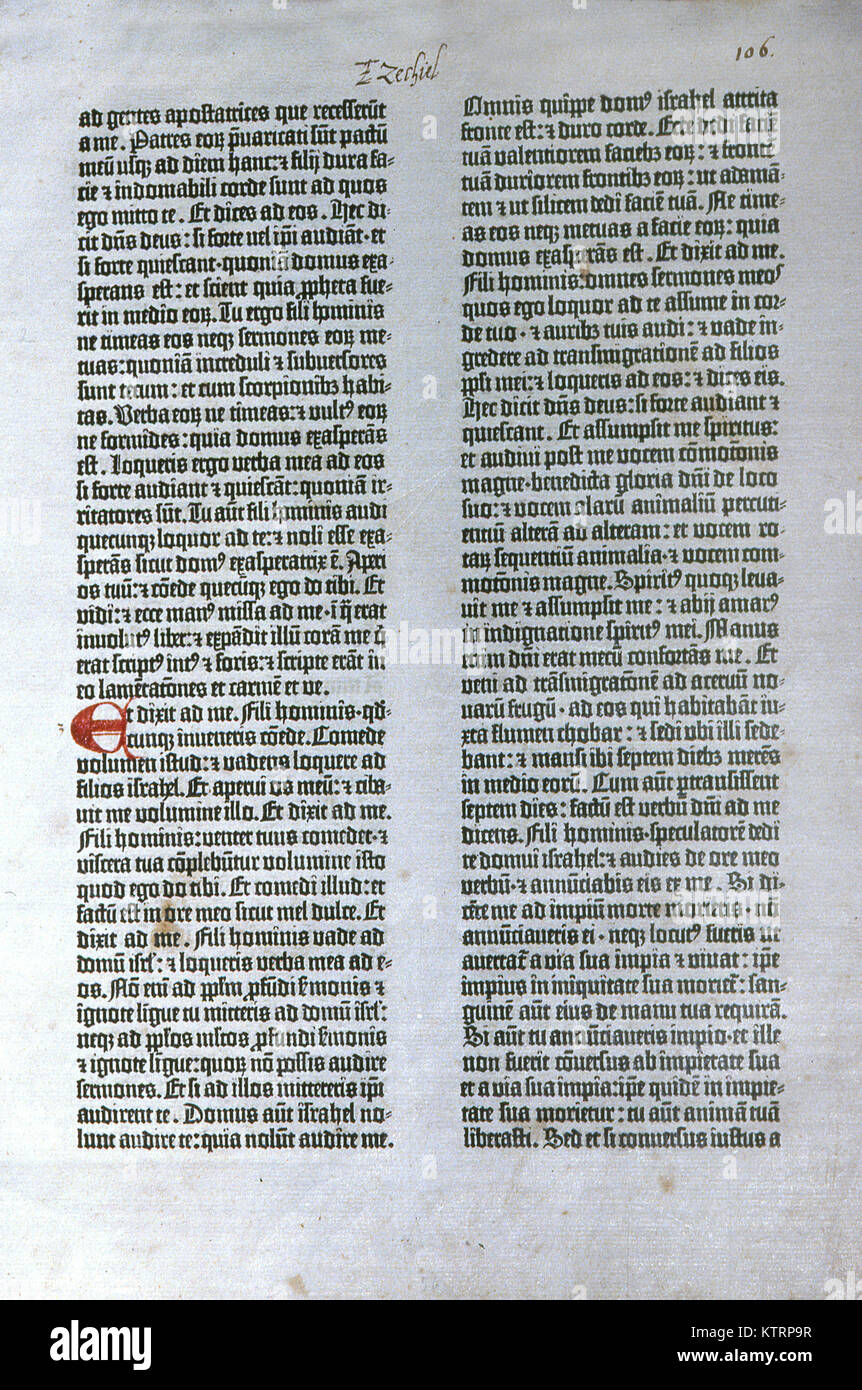 Ezechiel
106.
ad gentes apostatrices que recesserūt
a me. Patres eoꝝ p̄uaricati sūt pactū
meū usqꝫ ad diem hanc: ⁊ filij dura fa-
cie ⁊ indomabili corde sunt ad quos
ego mitto te. Et dices ad eos. Hec di-
cit dn̄s deus: si forte uel ip̄i audiāt · et
si forte quiescant · quoniā domus exa-
sperans est: et scient quia ꝓpheta fue-
rit in medio eoꝝ. Tu ergo fili hominis
ne timeas eos neqꝫ sermones eoꝝ me-
tuas: quoniā increduli ⁊ subuersores
sunt tecum: et cum scorpionibꝫ habi-
tas. Verba eoꝝ ne timeas: ⁊ vultꝰ eoꝝ
ne formides: quia domus exasperās
est. Loqueris ergo verba mea ad eos
si forte audiant ⁊ quiescāt: quoniā ir-
ritatores sūt. Tu aūt fili hominis audi
quecunqꝫ loquor ad te: ⁊ noli esse exa-
sperās sicut domꝰ exasperatrix ē. Aperi
os tuū: ⁊ cōede quecūqꝫ ego do tibi. Et
vidi: ⁊ ecce manꝰ missa ad me · ī q̄ erat
involutꝰ liber: ⁊ expādit illū corā me q̄
erat scriptꝰ intꝰ ⁊ foris: ⁊ scripte erāt in
eo lamētatōnes et carmē et ve.
Et dixit ad me. Fili hominis · qd̄-
cunqꝫ inveneris cōede. Comede
volumen istud: ⁊ vadens loquere ad
filios israhel. Et aperui os meū: ⁊ ciba-
uit me volumine illo. Et dixit ad me.
Fili hominis: venter tuus comedet · ⁊
viscera tua cōplebūtur volumine isto
quod ego do tibi. Et comedi illud: et
factū est in ore meo sicut mel dulce. Et
dixit ad me. Fili hominis vade ad
domū isrł: ⁊ loqueris verba mea ad e-
os. Nō em̄ ad pp̄lm ꝓfūdi s̄monis ⁊
ignote līgue tu mitteris ad domū isrł:
neqꝫ ad pp̄los ml̄tos ꝓfundi s̄monis
⁊ ignote līgue: quoꝝ nō possis audire
sermones. Et si ad illos mittereris ip̄i
audirent te. Domus aūt israhel no-
lunt audire te: quia nolūt audire me.
Omnis quippe domꝰ israhel attrita
fronte est: ⁊ duro corde. Ecce dedi faciē
tuā valentiorem faciebꝫ eoꝝ: ⁊ frontē
tuā duriorem frontibꝫ eoꝝ: ut adamā-
tem ⁊ ut silicem dedi faciē tuā. Ne time-
as eos neqꝫ metuas a facie eoꝝ: quia
domus exasperās est. Et dixit ad me.
Fili hominis: omnes sermones meos
quos ego loquor ad te assume in cor-
de tuo · ⁊ auribꝫ tuis audi: ⁊ vade in-
gredere ad transmigrationē ad filios
pp̄li mei: ⁊ loqueris ad eos: ⁊ dices eis.
Hec dicit dn̄s deus: si forte audiant ⁊
quiescant. Et assumpsit me spiritus:
et audiui post me vocem cōmotōnis
magne · benedicta gloria dn̄i de loco
suo: ⁊ vocem alarū animaliū percuti-
entiū alterā ad alteram: et vocem ro-
taꝝ sequentiū animalia · ⁊ vocem com-
motōnis magne. Spiritꝰ quoqꝫ leua-
uit me ⁊ assumpsit me: ⁊ abij amarꝰ
in indignatione spiritꝰ mei. Manus
enim dn̄i erat mecū confortās me. Et
veni ad trāsmigratōnē ad aceruū no-
uarū frugū · ad eos qui habitabāt iu-
xta flumen chobar: ⁊ sedi ubi illi sede-
bant: ⁊ mansi ibi septem diebꝫ merēs
in medio eorū. Cum aūt ꝑtransissent
septem dies: factū est verbū dn̄i ad me
dicens. Fili hominis · speculatorē dedi
te domui israhel: ⁊ audies de ore meo
verbū · ⁊ annūciabis eis ex me. Si di-
cēte me ad impiū morte morieris · nō
annūciaueris ei · neqꝫ locutꝰ fueris ut
auertat̄ a via sua impia ⁊ vivat: ip̄e
impius in iniquitate sua moriet̄: san-
guinē aūt eius de manu tua requirā.
Si aūt tu annūciaueris impio · et ille
non fuerit cōuersus ab impietate sua
et a via sua impia: ip̄e quidē in impie-
tate sua morietur: tu aūt animā tuā
liberasti. Sed et si conuersus iustus a
alamy
Image ID: KTRP9R
www.alamy.com